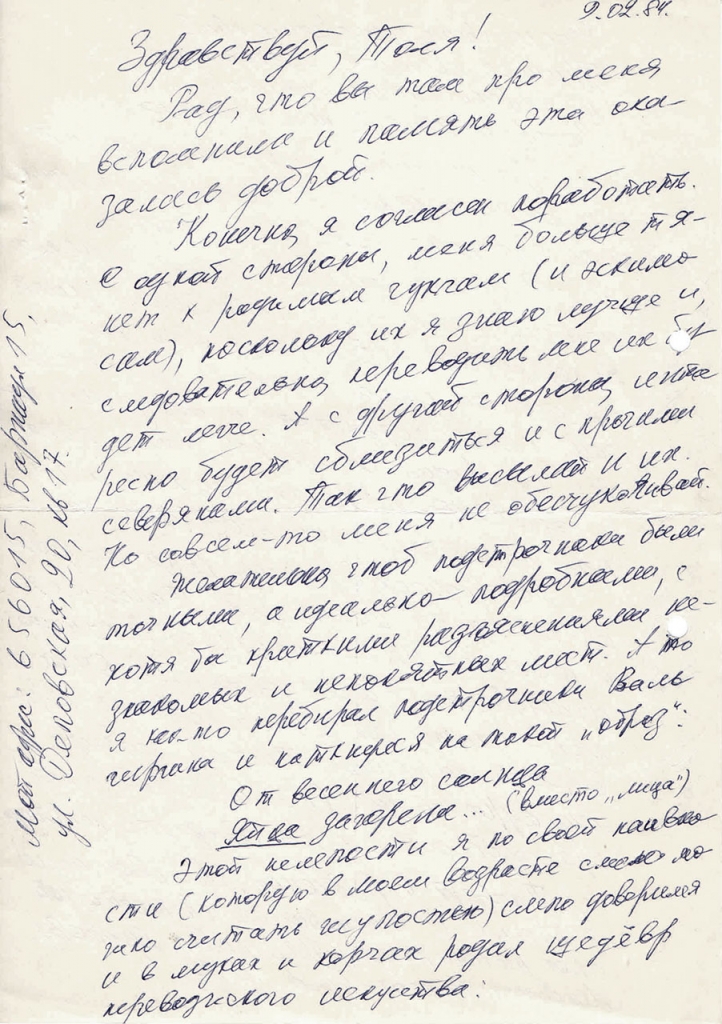 9.02.84.
Здравствуй, Толя!
Рад, что вы там про меня
вспомнили и память эта ока-
залась доброй.
Конечно, я согласен поработать.
С одной стороны, меня больше тя-
нет к родимым чукчам (и эскимо-
сам), поскольку их я знаю лучше и,
следовательно, переводить мне их бу-
дет легче. А с другой стороны, инте-
ресно будет сблизиться и с прочими
северянами. Так что высылай и их.
Но совсем-то меня не обесчукчивай.
Желательно, чтоб подстрочники были
точными, а идеально – подробными, с
хотя бы краткими разъяснениями не-
знакомых и непонятных мест. А то
я как-то перебирал подстрочники Валь-
гиргина и наткнулся на такой „образ":
От весеннего солнца
Яйца загорели... (вместо „лица")
Этой нелепости я по своей наивно-
сти (которую в моём возрасте смело мо-
жно считать глупостью) слепо доверился
и в муках и корчах родил шедёвр
переводческого искусства:
Мой адрес: 656015, Барнаул 15,
ул. Деповская, 20, кв 17.